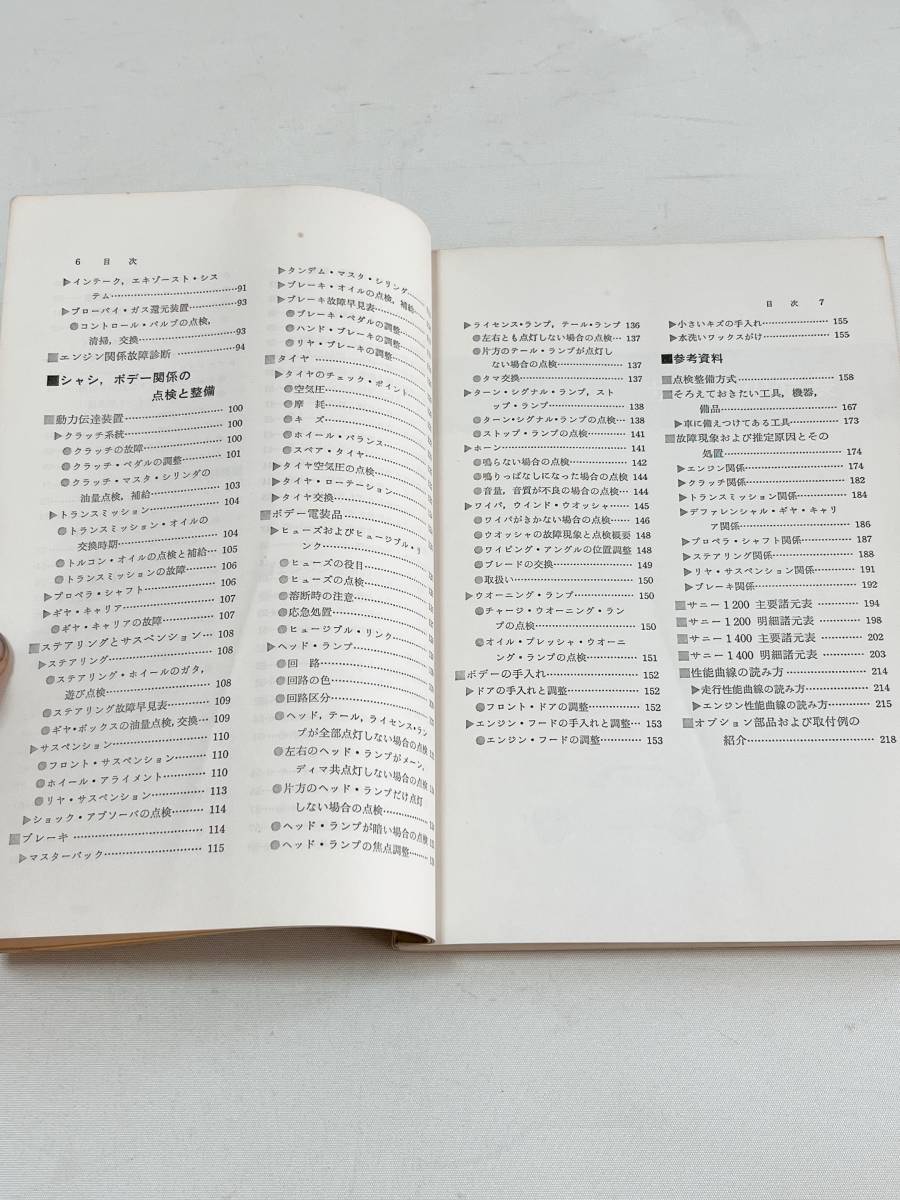 6 目 次
▶インテーク,エキゾースト・シス
テム……………………………91
▶ブローバイ・ガス還元装置…………93
●コントロール・バルブの点検,
清掃,交換…………………93
■エンジン関係故障診断 ……………94
■シャシ,ボデー関係の
点検と整備
■動力伝達装置………………………100
▶クラッチ系統………………………100
●クラッチの故障……………………100
●クラッチ・ペダルの調整…………101
●クラッチ・マスタ・シリンダの
油量点検,補給…………………103
▶トランスミッション………………104
●トランスミッション・オイルの
交換時期…………………………104
●トルコン・オイルの点検と補給…105
●トランスミッションの故障………106
▶プロペラ・シャフト………………106
▶ギヤ・キャリア……………………107
●ギヤ・キャリアの故障……………107
■ステアリングとサスペンション…108
▶ステアリング………………………108
●ステアリング・ホイールのガタ,
遊び点検…………………………108
●ステアリング故障早見表…………109
●ギヤ・ボックスの油量点検,交換…109
▶サスペンション……………………110
●フロント・サスペンション………110
●ホイール・アライメント…………110
●リヤ・サスペンション……………113
▶ショック・アブソーバの点検……114
■ブレーキ……………………………114
▶マスターバック……………………115
▶タンデム・マスタ・シリンダ……
▶ブレーキ・オイルの点検,補給……
▶ブレーキ故障早見表………………
●ブレーキ・ペダルの調整…………
●ハンド・ブレーキの調整…………
●リヤ・ブレーキの調整……………
■タイヤ………………………………
▶タイヤのチェック・ポイント……
●空気圧………………………………
●摩 耗………………………………
●キ ズ………………………………
●ホイール・バランス………………
●スペア・タイヤ……………………
▶タイヤ空気圧の点検………………
▶タイヤ・ローテーション…………
▶タイヤ交換…………………………
■ボデー電装品………………………
▶ヒューズおよびヒュージブル・リ
ンク…………………………………
●ヒューズの役目……………………
●ヒューズの点検……………………
●溶断時の注意………………………
●応急処置……………………………
●ヒュージブル・リンク……………
▶ヘッド・ランプ……………………
●回 路………………………………
●回路の色……………………………
●回路区分……………………………
●ヘッド,テール,ライセンス・ラン
プが全部点灯しない場合の点検
●左右のヘッド・ランプがメーン,
ディマ共点灯しない場合の点検
●片方のヘッド・ランプだけ点灯
しない場合の点検…………………
●ヘッド・ランプが暗い場合の点検
●ヘッド・ランプの焦点調整………
目 次 7
▶ライセンス・ランプ,テール・ランプ 136
●左右とも点灯しない場合の点検…137
●片方のテール・ランプが点灯し
ない場合の点検…………………137
●タマ交換……………………………137
▶ターン・シグナル・ランプ,スト
ップ・ランプ……………………138
●ターン・シグナル・ランプの点検…138
●ストップ・ランプの点検…………141
▶ホーン………………………………141
●鳴らない場合の点検………………142
●鳴りっぱなしになった場合の点検 144
●音量,音質が不良の場合の点検…144
▶ワイパ,ウインド・ウオッシャ……145
●ワイパがきかない場合の点検……146
●ウオッシャの故障現象と点検概要 148
●ワイピング・アングルの位置調整 148
●ブレードの交換……………………149
●取扱い………………………………150
▶ウオーニング・ランプ……………150
●チャージ・ウオーニング・ラン
プの点検…………………………150
●オイル・プレッシャ・ウオーニ
ング・ランプの点検……………151
■ボデーの手入れ……………………152
▶ドアの手入れと調整………………152
●フロント・ドアの調整……………152
▶エンジン・フードの手入れと調整…153
●エンジン・フードの調整…………153
▶小さいキズの手入れ………………155
▶水洗いワックスがけ………………155
■参考資料
■点検整備方式………………………158
■そろえておきたい工具,機器,
備品………………………………167
▶車に備えつけてある工具…………173
■故障現象および推定原因とその
処置………………………………174
▶エンジン関係………………………174
▶クラッチ関係………………………182
▶トランスミッション関係…………184
▶デファレンシャル・ギヤ・キャリ
ア関係……………………………186
▶プロペラ・シャフト関係…………187
▶ステアリング関係…………………188
▶リヤ・サスペンション関係………191
▶ブレーキ関係………………………192
■サニー1200 主要諸元表…………194
■サニー1200 明細諸元表…………198
■サニー1400 主要諸元表…………202
■サニー1400 明細諸元表…………203
■性能曲線の読み方…………………214
▶走行性能曲線の読み方……………214
▶エンジン性能曲線の読み方………215
■オプション部品および取付例の
紹介………………………………218